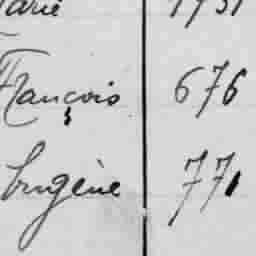 François 676
Eugène 771